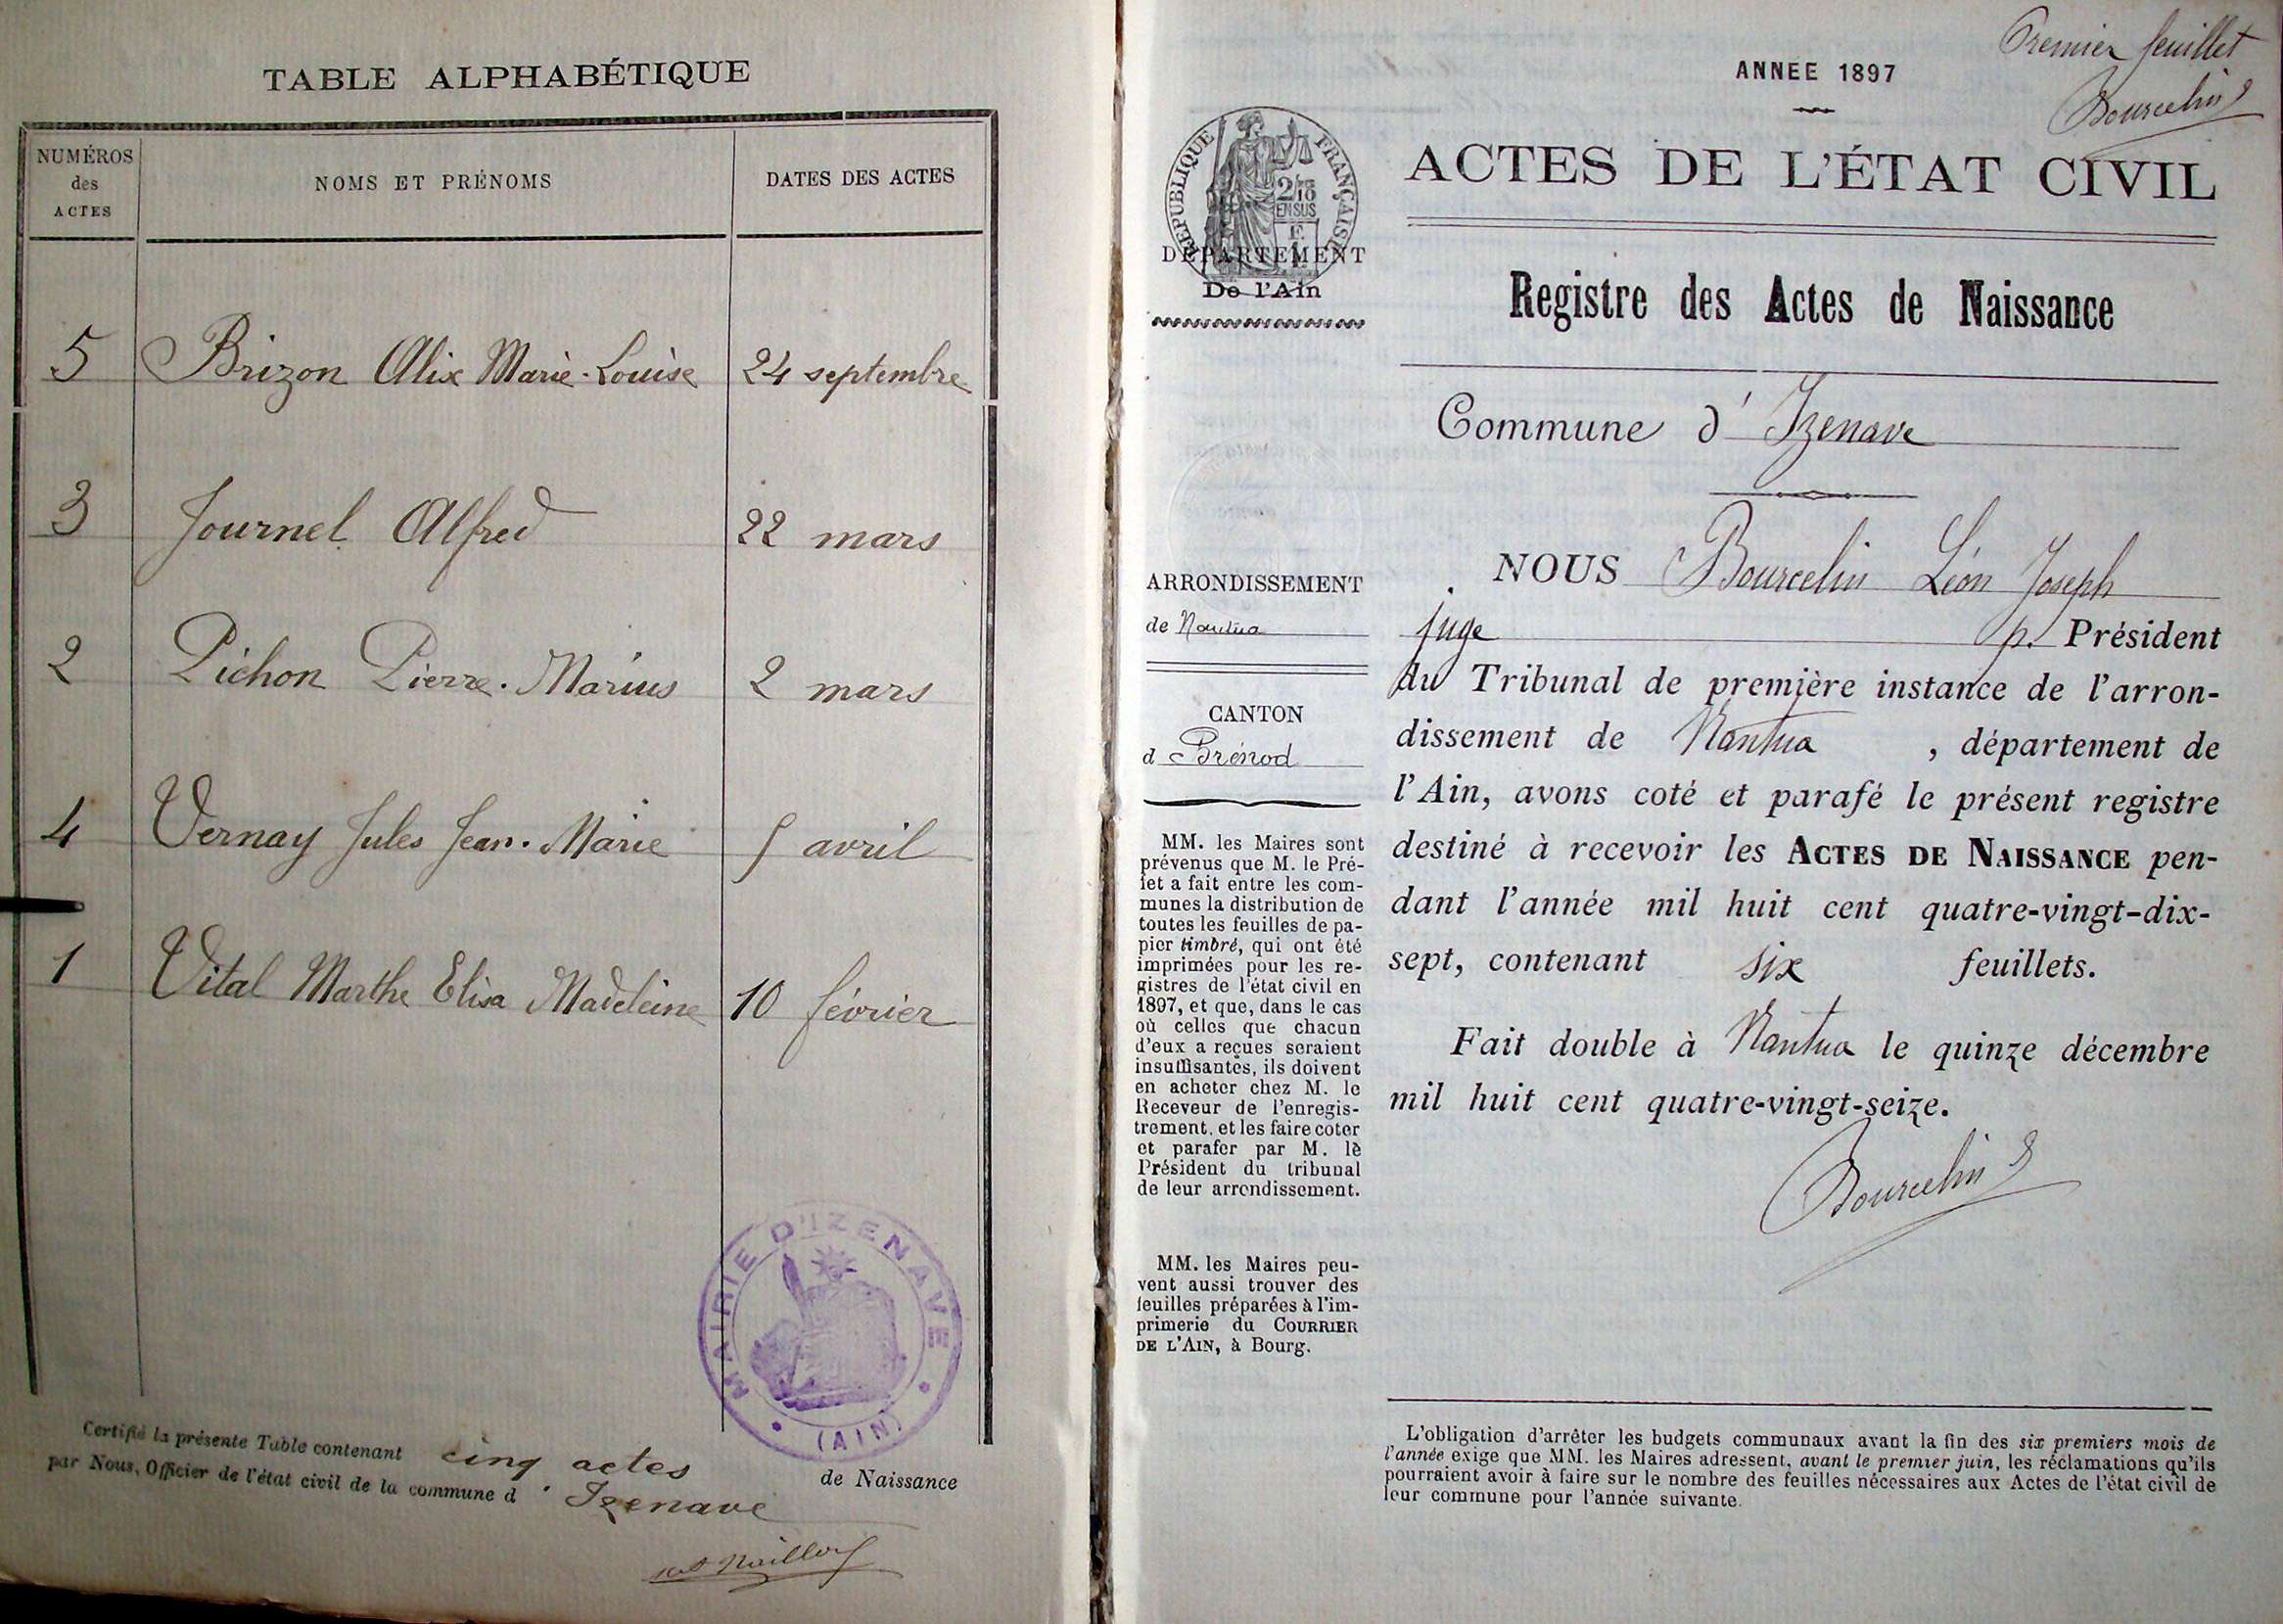 TABLE ALPHABÉTIQUE
NUMÉROS
des
ACTES
NOMS ET PRÉNOMS
DATES DES ACTES
5 Brizon Alix Marie-Louise 24 septembre
3 Journel Alfred 22 mars
2 Pichon Pierre-Marius 2 mars
4 Vernay Jules Jean-Marie 5 avril
1 Vital Marthe Elisa Madeleine 10 février
MAIRIE D'IZENAVE
(AIN)
Certifié la présente Table contenant cinq actes de Naissance
par Nous, Officier de l'état civil de la commune d'Izenave
Premier feuillet
Bourcelin
ANNEE 1897
RÉPUBLIQUE FRANÇAISE
EN SUS
ACTES DE L'ÉTAT CIVIL
DÉPARTEMENT
De l'Ain
Registre des Actes de Naissance
Commune d'Izenave
ARRONDISSEMENT
de Nantua
CANTON
d Brénod
MM. les Maires sont
prévenus que M. le Pré-
fet a fait entre les com-
munes la distribution de
toutes les feuilles de pa-
pier timbré, qui ont été
imprimées pour les re-
gistres de l'état civil en
1897, et que, dans le cas
où celles que chacun
d'eux a reçues seraient
insuffisantes, ils doivent
en acheter chez M. le
Receveur de l'enregis-
trement, et les faire coter
et parafer par M. le
Président du tribunal
de leur arrondissement.
MM. les Maires peu-
vent aussi trouver des
feuilles préparées à l'im-
primerie du COURRIER
DE L'AIN, à Bourg.
NOUS Bourcelin Léon Joseph
juge p. Président
du Tribunal de première instance de l'arron-
dissement de Nantua, département de
l'Ain, avons coté et parafé le présent registre
destiné à recevoir les ACTES DE NAISSANCE pen-
dant l'année mil huit cent quatre-vingt-dix-
sept, contenant six feuillets.
Fait double à Nantua le quinze décembre
mil huit cent quatre-vingt-seize.
Bourcelin
L'obligation d'arrêter les budgets communaux avant la fin des six premiers mois de
l'année exige que MM. les Maires adressent, avant le premier juin, les réclamations qu'ils
pourraient avoir à faire sur le nombre des feuilles nécessaires aux Actes de l'état civil de
leur commune pour l'année suivante.